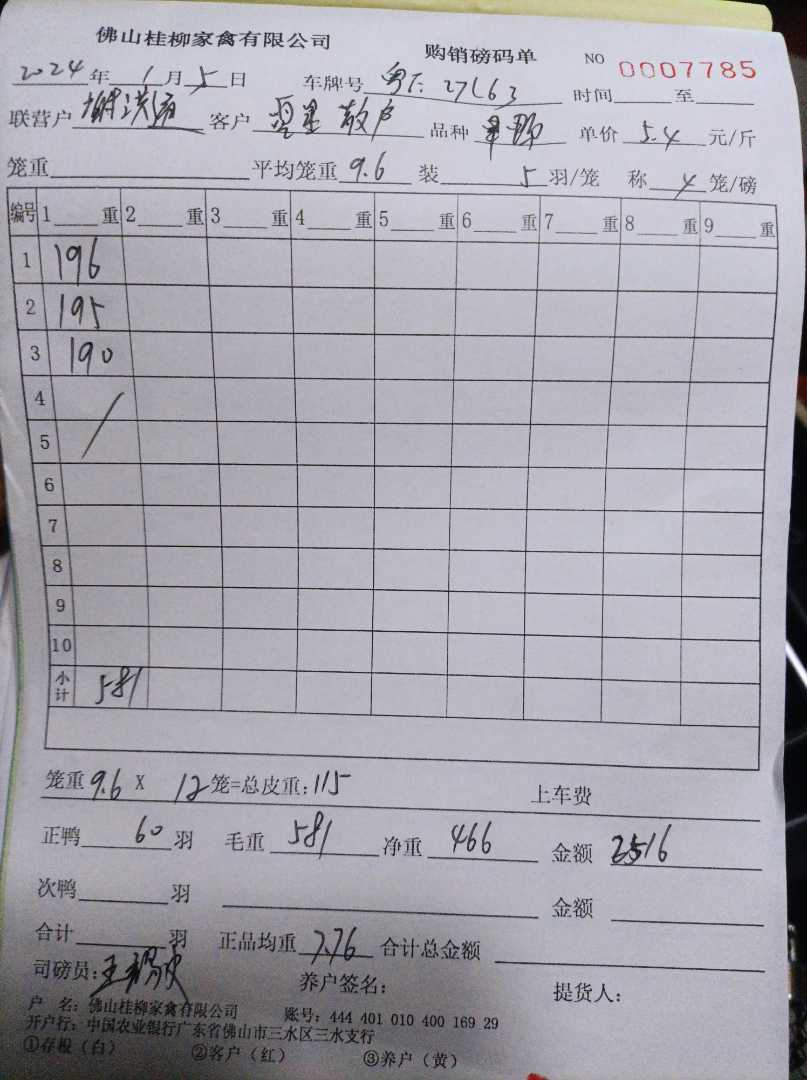 佛山桂柳家禽有限公司 购销磅码单 NO 0007785
2024年1月5日 车牌号 27L63 时间 至
联营户 客户 散户 品种 单价 5.4 元/斤
笼重 平均笼重 9.6 装 5 羽/笼 称 4 笼/磅
编号 1 重 2 重 3 重 4 重 5 重 6 重 7 重 8 重 9 重
1 196
2 195
3 190
4
5
6
7
8
9
10
小计 581
笼重 9.6 X 12 笼=总皮重: 115 上车费
正鸭 60 羽 毛重 581 净重 466 金额 2516
次鸭 羽 金额
合计 羽 正品均重 7.76 合计总金额
司磅员: 养户签名: 提货人:
户 名: 佛山桂柳家禽有限公司 账号: 444 401 010 400 169 29
开户行: 中国农业银行广东省佛山市三水区三水支行
①存根（白） ②客户（红） ③养户（黄）